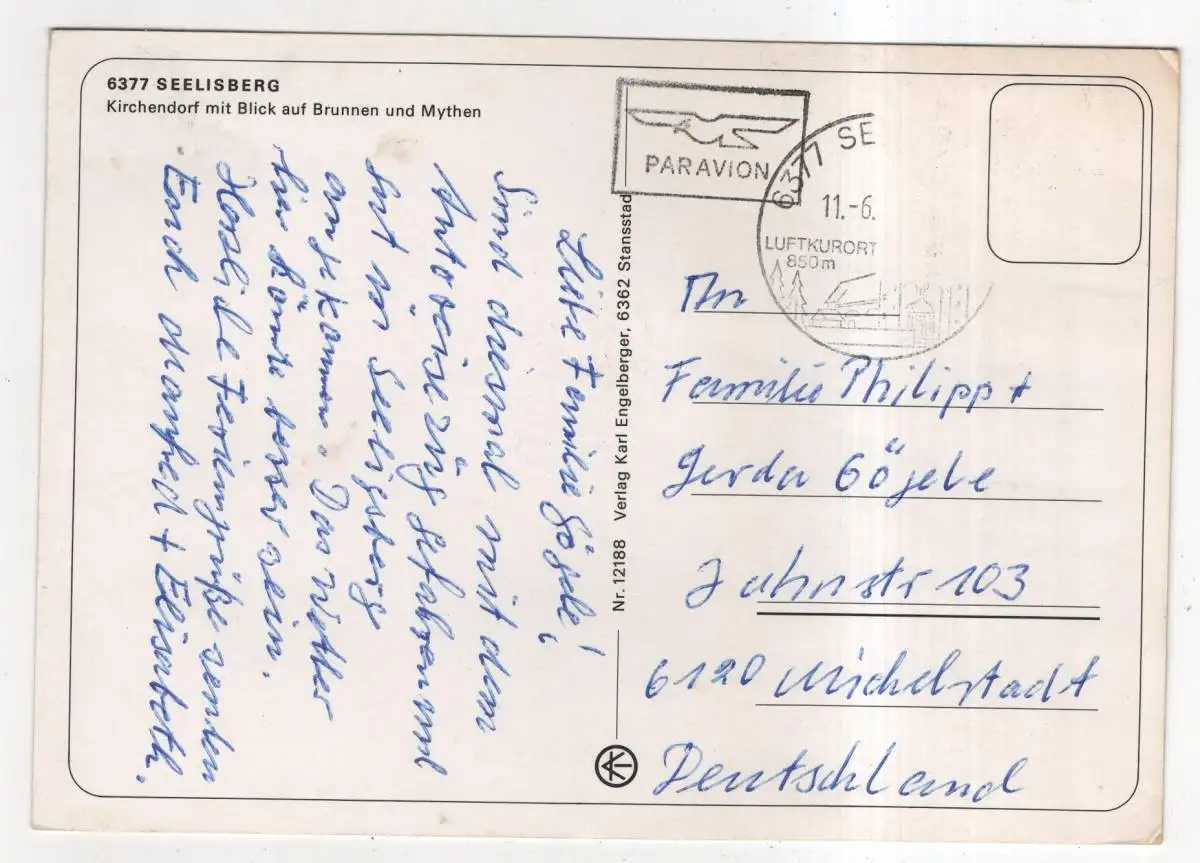 6377 SEELISBERG
Kirchendorf mit Blick auf Brunnen und Mythen
Liebe Familie Göjele!
Sind diesmal mit dem
Autoreisezüg gefahren und
gut in Seelisberg
angekommen. Das Wetter
hier könnte besser sein.
Herzliche Feriengrüße senden
Euch Manfred + Elisabeth.
Nr. 12188 Verlag Karl Engelberger, 6362 Stansstad
PAR AVION
6377 SE
11.-6.
LUFTKURORT
850m
An
Familie Philipp +
Gerda Göjele
Jahnstr 103
6120 Michelstadt
Deutschland